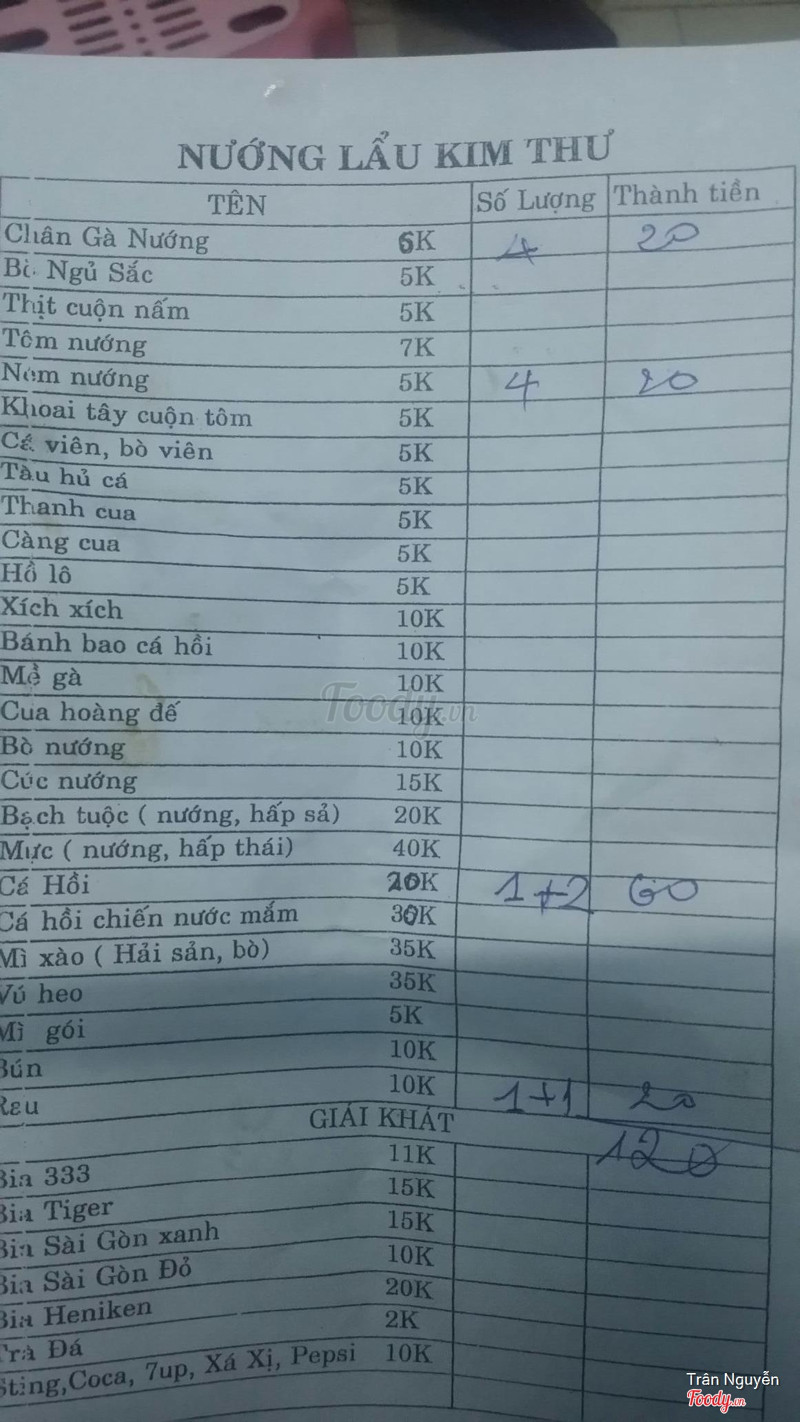 NƯỚNG LẨU KIM THƯ
TÊN Số Lượng Thành tiền
Chân Gà Nướng 6K 4 20
Bò Ngủ Sắc 5K
Thịt cuộn nấm 5K
Tôm nướng 7K
Nem nướng 5K 4 20
Khoai tây cuộn tôm 5K
Cá viên, bò viên 5K
Tàu hủ cá 5K
Thanh cua 5K
Càng cua 5K
Hồ lô 5K
Xích xích 10K
Bánh bao cá hồi 10K
Mề gà 10K
Cua hoàng đế 10K
Bò nướng 10K
Cúc nướng 15K
Bạch tuộc ( nướng, hấp sả) 20K
Mực ( nướng, hấp thái) 40K
Cá Hồi 20K 1+2 60
Cá hồi chiến nước mắm 30K
Mì xào ( Hải sản, bò) 35K
Vú heo 35K
Mì gói 5K
Bún 10K
Rau 10K 1+1 20
GIẢI KHÁT 120
Bia 333 11K
Bia Tiger 15K
Bia Sài Gòn xanh 15K
Bia Sài Gòn Đỏ 10K
Bia Heniken 20K
Trà Đá 2K
Sting,Coca, 7up, Xá Xị, Pepsi 10K
Foody.vn
Trân Nguyễn
Foody.vn